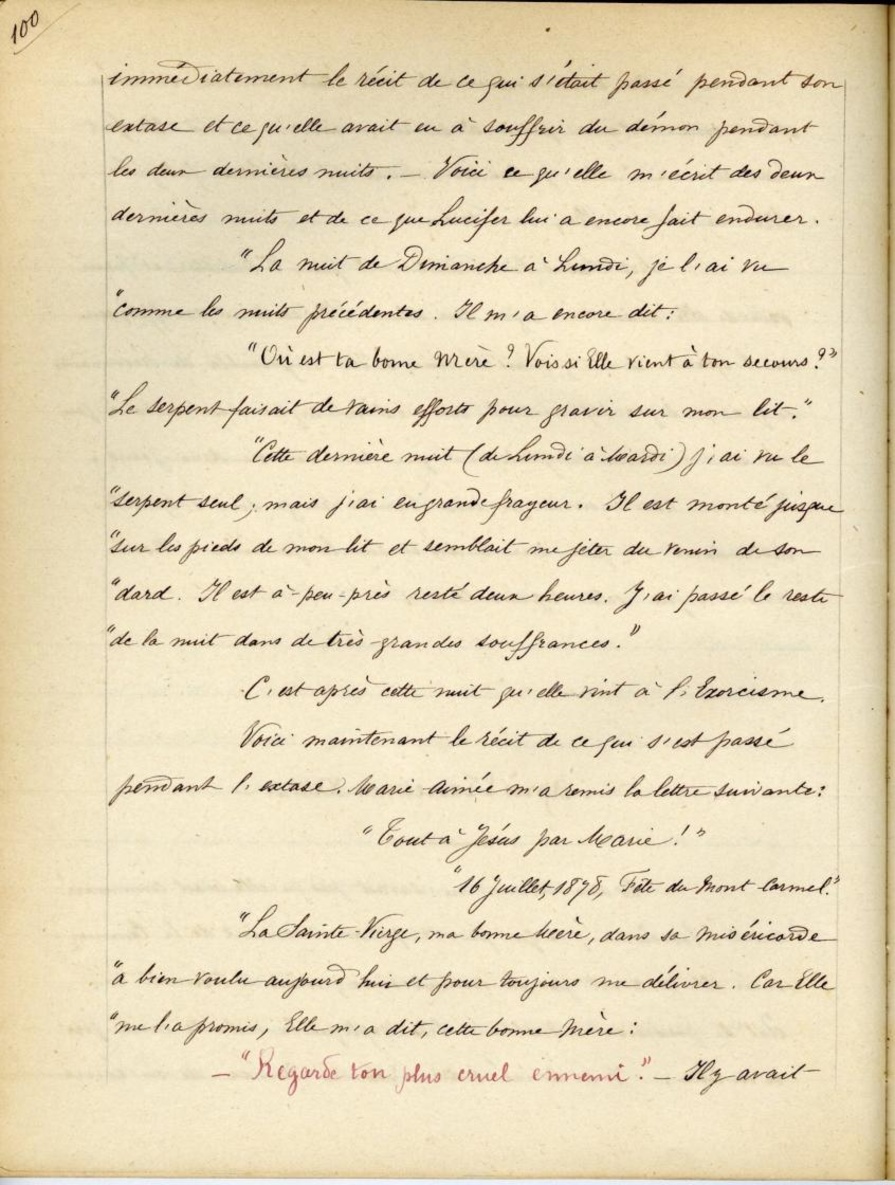 100
immédiatement le récit de ce qui s'était passé pendant son
extase et ce qu'elle avait eu à souffrir du démon pendant
les deux dernières nuits. — Voici ce qu'elle m'écrit des deux
dernières nuits et de ce que Lucifer lui a encore fait endurer.
"La nuit de Dimanche à Lundi, je l'ai vu
"comme les nuits précédentes. Il m'a encore dit:
"Où est ta bonne Mère ? Vois si Elle vient à ton secours ?"
"Le serpent faisait de vains efforts pour gravir sur mon lit."
"Cette dernière nuit (de Lundi à Mardi) j'ai vu le
"serpent seul; mais j'ai eu grande frayeur. Il est monté jusque
"sur les pieds de mon lit et semblait me jeter du venin de son
"dard. Il est à-peu-près resté deux heures. J'ai passé le reste
"de la nuit dans de très-grandes souffrances."
C'est après cette nuit qu'elle vint à l'Exorcisme.
Voici maintenant le récit de ce qui s'est passé
pendant l'extase. Marie-Aimée m'a remis la lettre suivante:
"Tout à Jésus par Marie !"
"16 Juillet, 1878, Fête du Mont Carmel."
"La Sainte-Vierge, ma bonne Mère, dans sa miséricorde
"a bien voulu aujourd'hui et pour toujours me délivrer. Car Elle
"me l'a promis, Elle m'a dit, cette bonne Mère :
— "Regarde ton plus cruel ennemi." — Il y avait